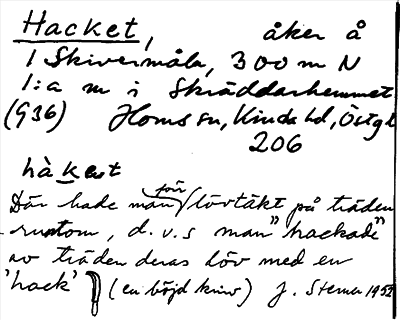 Hacket, åker å
1 Skivermåla, 300 m N
1:a m i Skräddarhemmet
(936) Horns sn, Kinda hd, Östgl
206
hàkent
Där hade man förr lövtäkt på träden
runtom, d.v.s man "hackade"
av träden deras löv med en
'hack' (en böjd kniv) J. Stema 1952